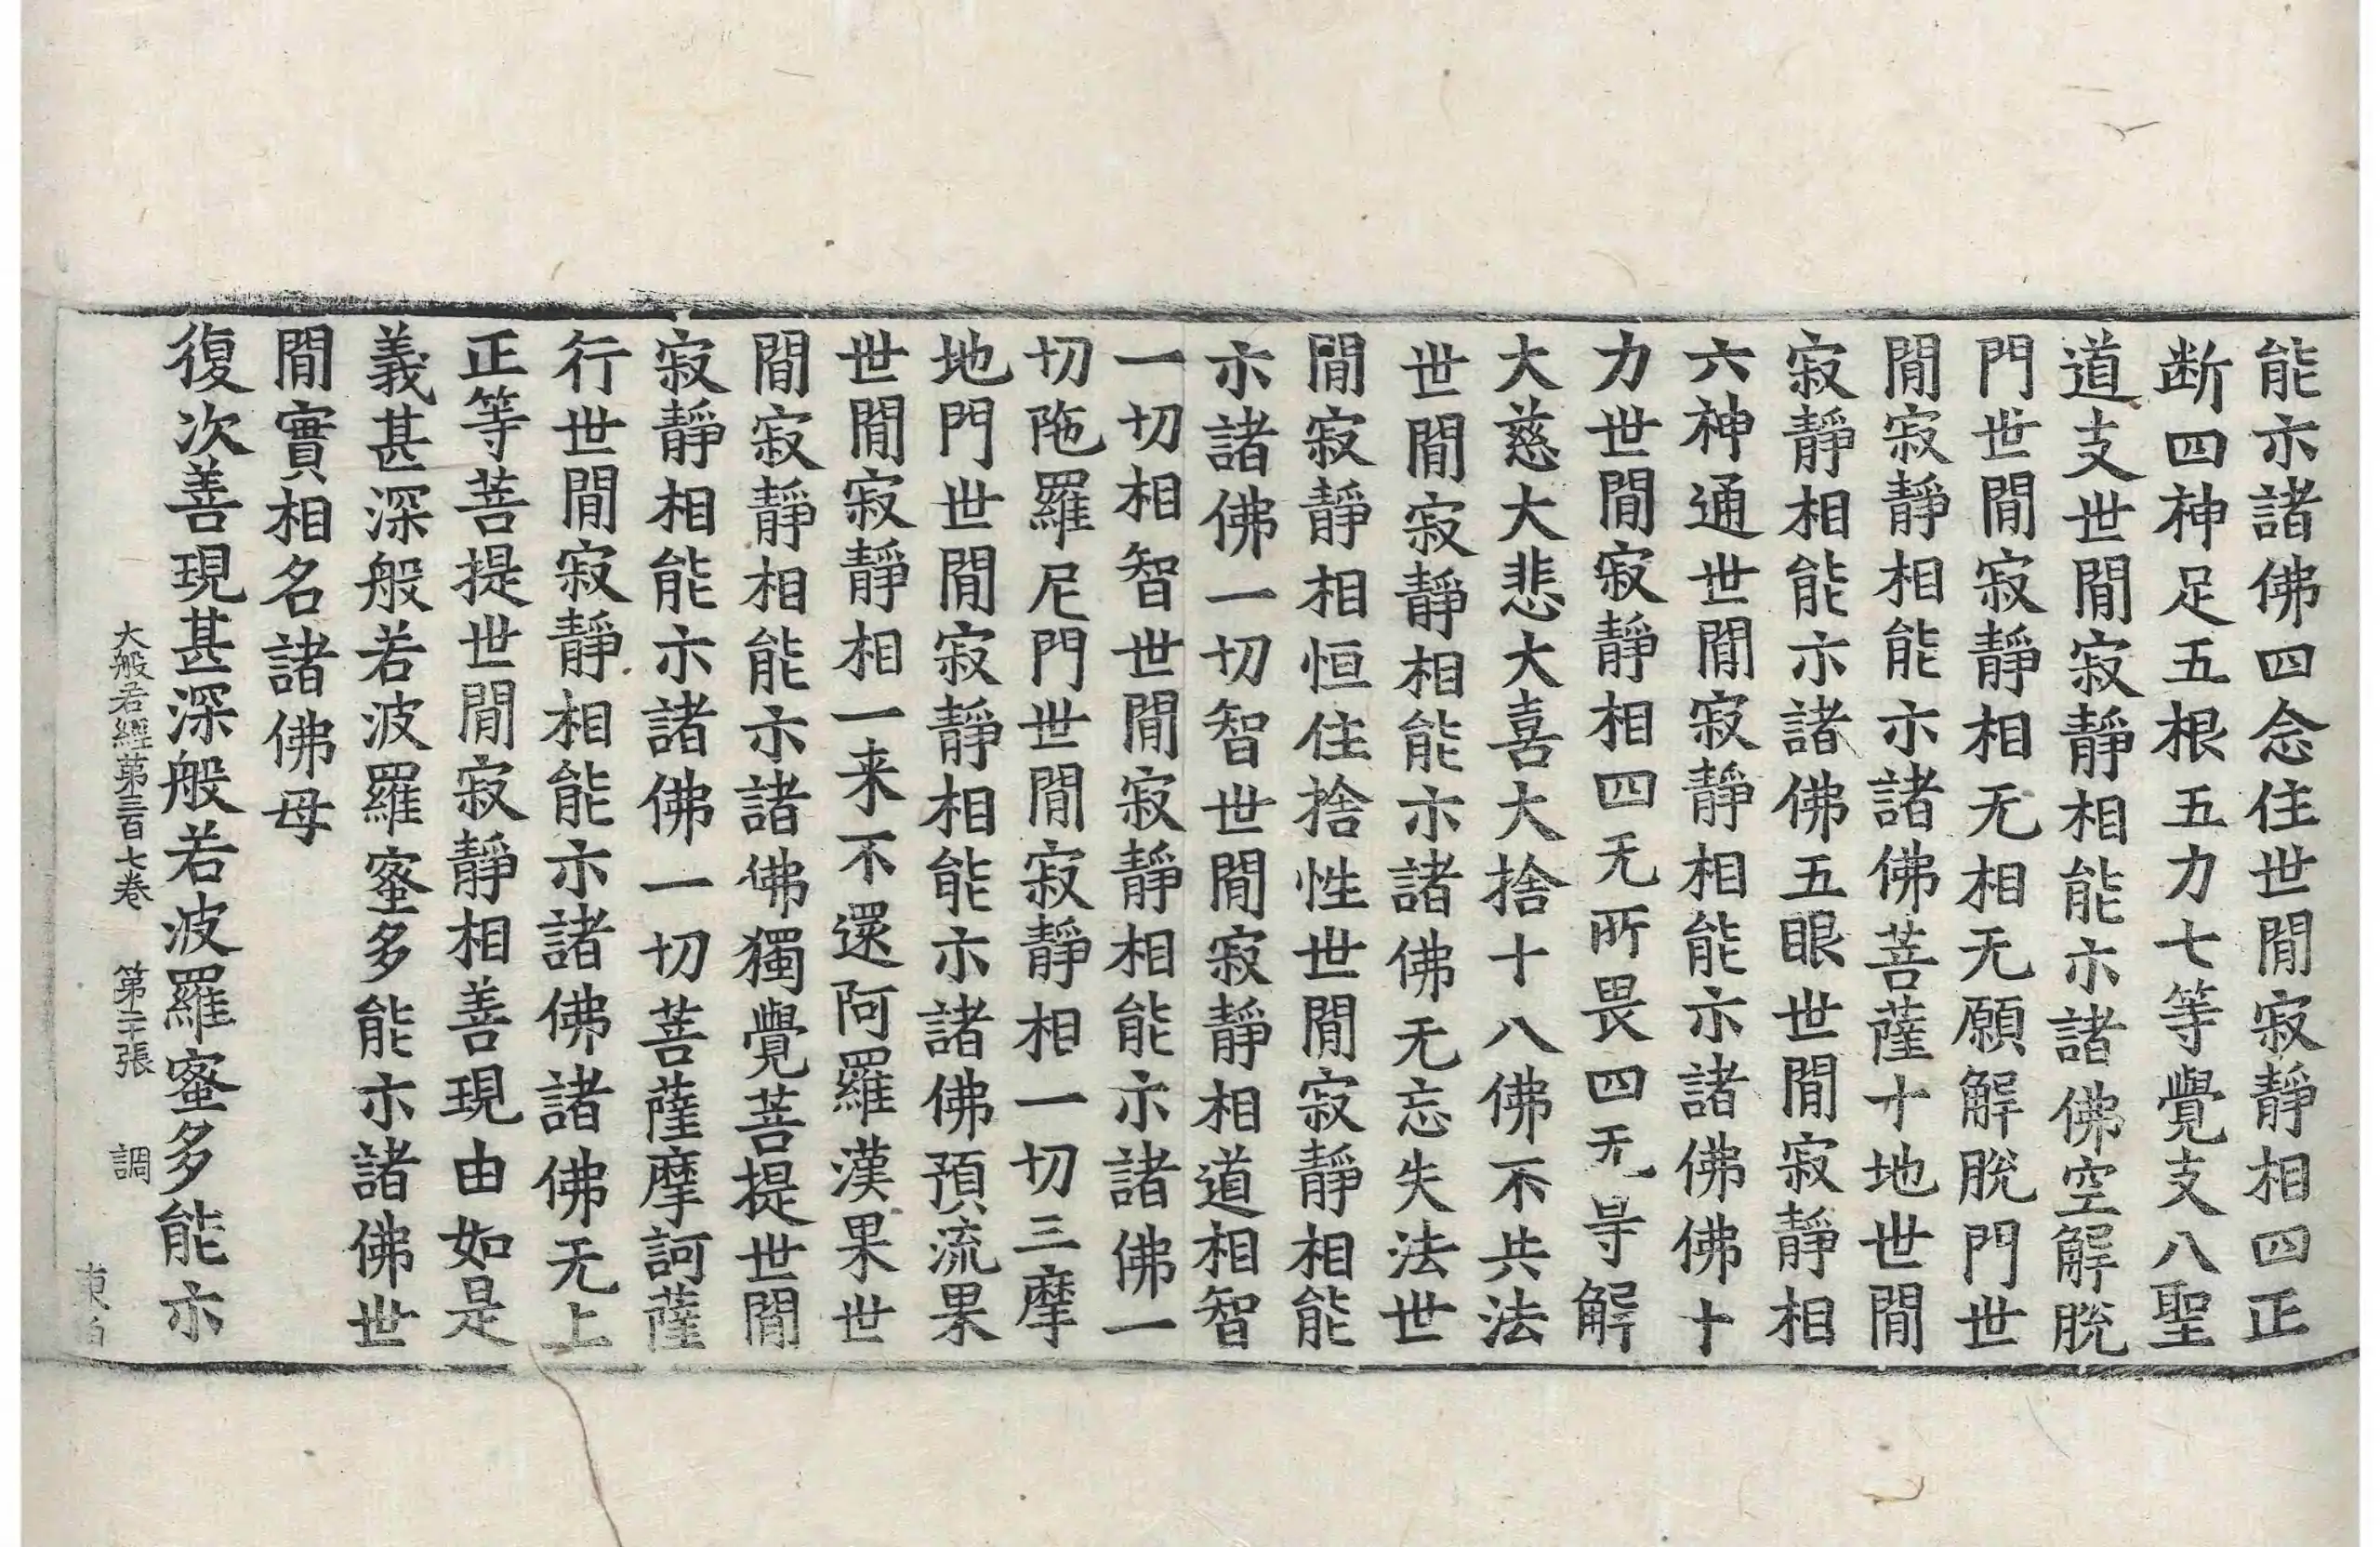 能示諸佛四念住世閒寂靜相四正
断四神足五根五力七等覺支八聖
道支世閒寂靜相能示諸佛空解脫
門世閒寂靜相无相无願解脫門世
閒寂靜相能示諸佛菩薩十地世閒
寂靜相能示諸佛五眼世閒寂靜相
六神通世閒寂靜相能示諸佛佛十
力世閒寂靜相四无所畏四无㝵解
大慈大悲大喜大捨十八佛不共法
世閒寂靜相能示諸佛无忘失法世
閒寂靜相恒住捨性世閒寂靜相能
示諸佛一切智世閒寂靜相道相智
一切相智世閒寂靜相能示諸佛一
切陁羅尼門世閒寂靜相一切三摩
地門世閒寂靜相能示諸佛預流果
世閒寂靜相一来不還阿羅漢果世
閒寂靜相能示諸佛獨覺菩提世閒
寂靜相能示諸佛一切菩薩摩訶薩
行世閒寂靜相能示諸佛諸佛无上
正等菩提世閒寂靜相善現由如是
義甚深般若波羅蜜多能示諸佛世
閒實相名諸佛母
復次善現甚深般若波羅蜜多能示
大般若經第三百七卷 第二十張 調
東伯